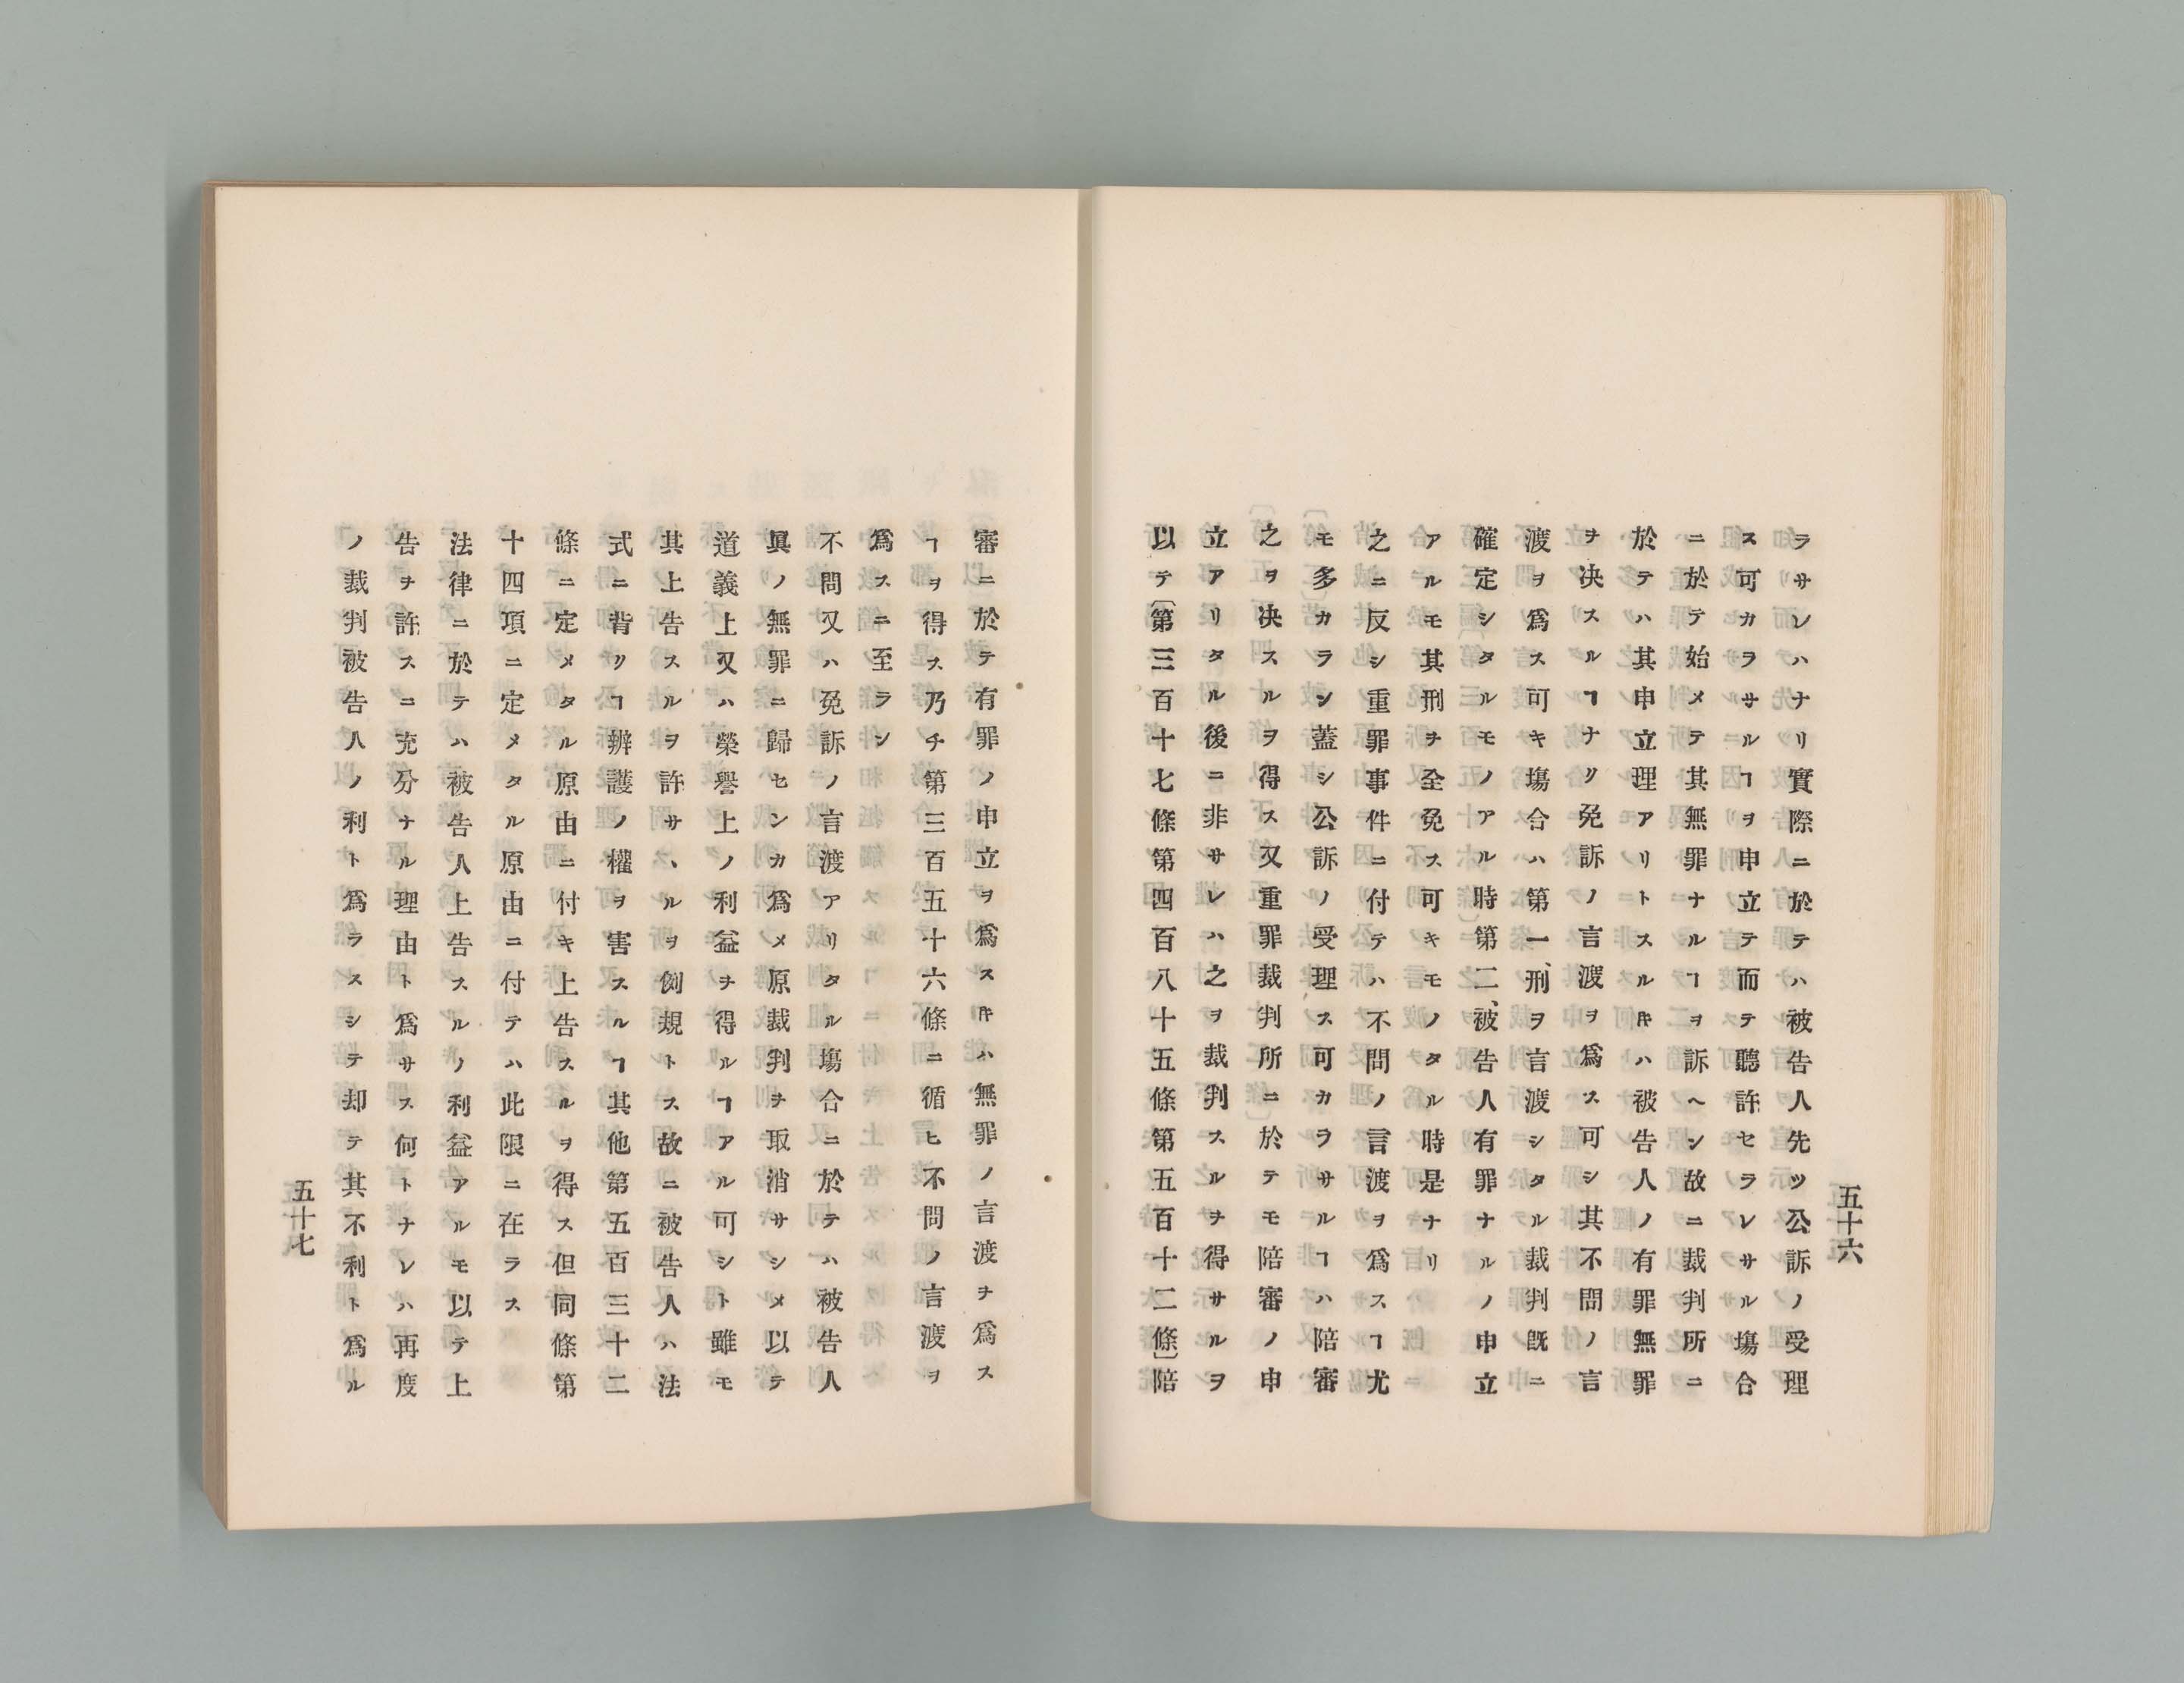 五十六
ラサレハナリ實際ニ於テハ被告人先ツ公訴ノ受理
ス可カラサルヿヲ申立テ而テ聽許セラレサル塲合
ニ於テ始メテ其無罪ナルヿヲ訴ヘン故ニ裁判所ニ
於テハ其申立理アリトスル𪜈ハ被告人ノ有罪無罪
ヲ决スルヿナリ免訴ノ言渡ヲ爲ス可シ其不問ノ言
渡ヲ爲ス可キ塲合ハ第一、刑ヲ言渡シタル裁判既ニ
確定シタルモノアル時第二、被告人有罪ナルノ申立
アルモ其刑ヲ全免ス可キモノタル時是ナリ
之ニ反シ重罪事件ニ付テハ不問ノ言渡ヲ爲スヿ尤
モ多カラン蓋シ公訴ノ受理ス可カラサルヿハ陪審
之ヲ决スルヲ得ス又重罪裁判所ニ於テモ陪審ノ申
立アリタル後ニ非サレハ之ヲ裁判スルヲ得サルヲ
以テ〔第三百十七條第四百八十五條第五百十二條〕陪
審ニ於テ有罪ノ申立ヲ爲ス𪜈ハ無罪ノ言渡ヲ爲ス
ヿヲ得ス乃チ第三百五十六條ニ循ヒ不問ノ言渡ヲ
爲スニ至ラン
不問又ハ免訴ノ言渡アリタル塲合ニ於テハ被告人
眞ノ無罪ニ歸センカ爲メ原裁判ヲ取消サシメ以テ
道義上又ハ榮譽上ノ利益ヲ得ルヿアル可シト雖モ
其上告スルヲ許サヽルヲ例規トス故ニ被告人ハ法
式ニ背リヿ辨護ノ權ヲ害スルヿ其他第五百三十二
條ニ定メタル原由ニ付キ上告スルヲ得ス但同條第
十四項ニ定メタル原由ニ付テハ此限ニ在ラス
法律ニ於テハ被告人上告スルノ利益アルモ以テ上
告ヲ許スニ充分ナル理由ト爲サス何トナレハ再度
ノ裁判被告人ノ利ト爲ラスシテ却テ其不利ト爲ル
五十七